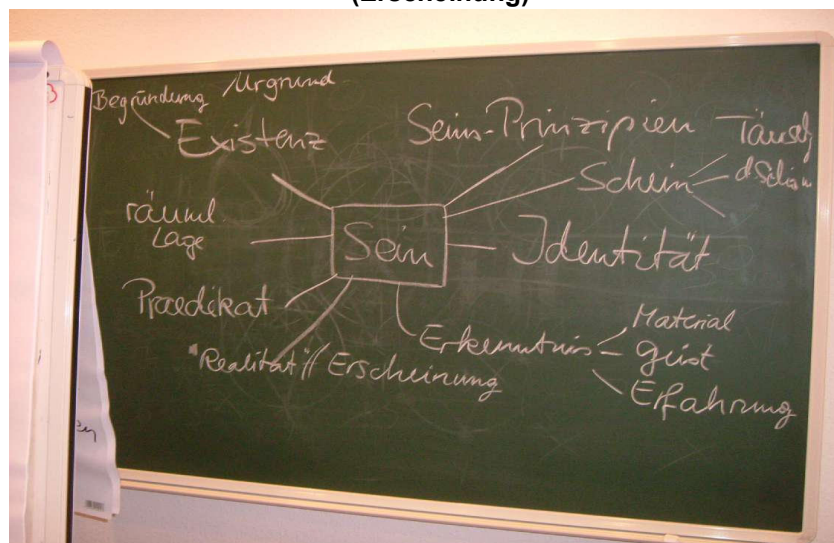 (Erscheinung)
Begründung Urgrund
Existenz
Seins-Prinzipien
Täusch
Schein
räuml
Lage
Sein
Identität
Praedikat
"Realität"// Erscheinung
Erkenntnis
Material
Geist
Erfahrung
3